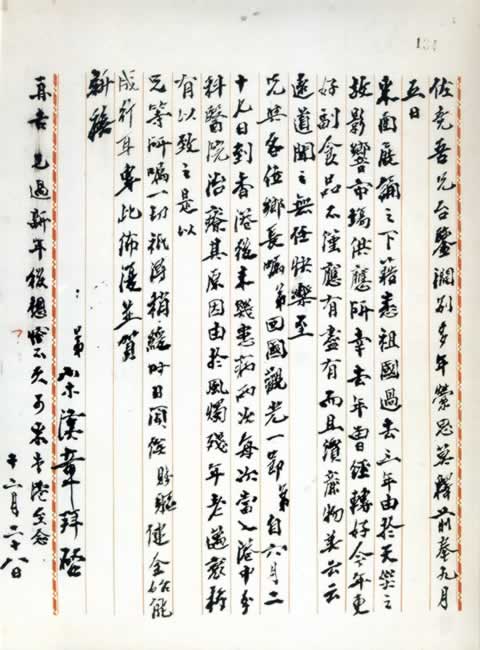 134
佐堯吾兄台鑒濶別多年縈思莫釋前奉九月
五日
來函展誦之下藉悉祖國過去三年由於天災之
故影響市場供應所幸去年曾經轉好今年更
好副食品不僅應有盡有而且價廉物美云云
遠道聞之無任快樂至
兄與各位鄉長囑弟回國觀光一節弟自六月二
十九日到香港後未幾患病兩次每次當入港中分
科醫院治療其原因由於風燭殘年老邁衰朽
有以致之是以
兄等所囑一切祗得稍緩時日健全始能
成行耳專此佈復並賀
新禧
弟宋漢章拜啓
再者兄過新年後想不久可來香港
十二月二十八日